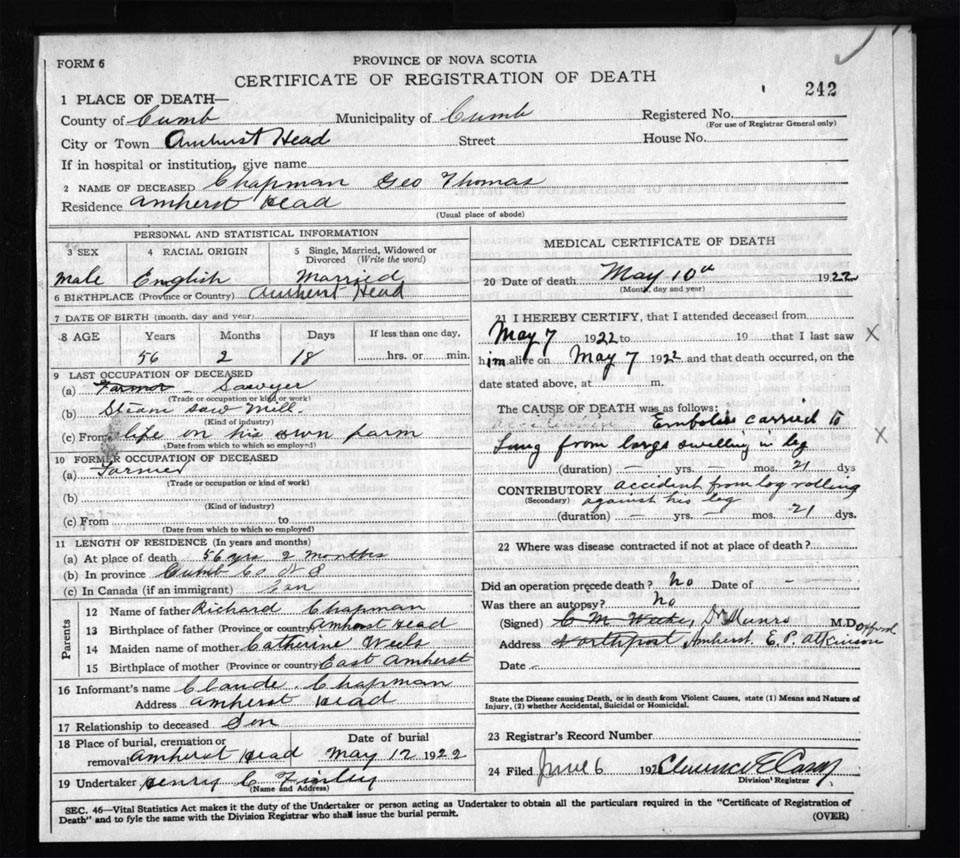 FORM 6
PROVINCE OF NOVA SCOTIA
CERTIFICATE OF REGISTRATION OF DEATH
242
1 PLACE OF DEATH—
County of Cumb Municipality of Cumb Registered No.
(For use of Registrar General only)
City or Town Amherst Head Street House No.
If in hospital or institution, give name
2 NAME OF DECEASED Chapman Geo Thomas
Residence Amherst Head
(Usual place of abode)
PERSONAL AND STATISTICAL INFORMATION
3 SEX 4 RACIAL ORIGIN 5 Single, Married, Widowed or Divorced (Write the word)
Male English Married
6 BIRTHPLACE (Province or Country) Amherst Head
7 DATE OF BIRTH (month, day and year)
8 AGE Years Months Days If less than one day,
56 2 18 hrs. or min.
9 LAST OCCUPATION OF DECEASED
(a) Farmer - Sawyer
(Trade or occupation or kind of work)
(b) Steam Saw Mill.
(Kind of industry)
(c) From life on his own farm
(Date from which to which so employed)
10 FORMER OCCUPATION OF DECEASED
(a) Farmer
(Trade or occupation or kind of work)
(b)
(Kind of industry)
(c) From to
(Date from which to which so employed)
11 LENGTH OF RESIDENCE (In years and months)
(a) At place of death 56 yrs 2 months
(b) In province Cumb Co N S
(c) In Canada (if an immigrant)
Parents
12 Name of father Richard Chapman
13 Birthplace of father (Province or country) Amherst Head
14 Maiden name of mother Catherine
15 Birthplace of mother (Province or country) East Amherst
16 Informant's name Claude Chapman
Address Amherst Head
17 Relationship to deceased Son
18 Place of burial, cremation or removal Amherst Head Date of burial May 12 1922
19 Undertaker Henry C Finley
(Name and Address)
MEDICAL CERTIFICATE OF DEATH
20 Date of death May 10th 1922
(Month, day and year)
21 I HEREBY CERTIFY, that I attended deceased from
May 7 1922 to 19 that I last saw X
him alive on May 7 1922 and that death occurred, on the
date stated above, at m.
The CAUSE OF DEATH was as follows:
Embolis carried to X
lung from large swelling in leg
(duration) — yrs. — mos. 21 dys
CONTRIBUTORY accident from log rolling
(Secondary) against his leg
(duration) — yrs. — mos. 21 dys.
22 Where was disease contracted if not at place of death?
Did an operation precede death? No Date of -
Was there an autopsy? No
(Signed) C M Dr Munro M.D.
Address Northport, Amherst. E. P. Atkinson
Date -
State the Disease causing Death, or in death from Violent Causes, state (1) Means and Nature of
Injury, (2) whether Accidental, Suicidal or Homicidal.
23 Registrar's Record Number
24 Filed June 6 192 Clarence E
Division Registrar
SEC. 46—Vital Statistics Act makes it the duty of the Undertaker or person acting as Undertaker to obtain all the particulars required in the "Certificate of Registration of
Death" and to fyle the same with the Division Registrar who shall issue the burial permit.
(OVER)